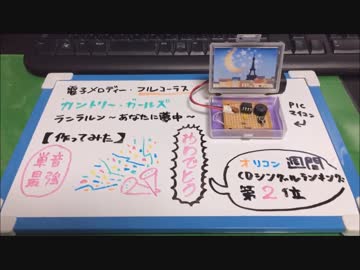 電子メロディー・フルコーラス
カントリー・ガールズ
ランラルン～あなたに夢中～
【作ってみた】
単音
最強
おめでとう
PIC
マイコン
オリコン週間
CDシングルランキング
第2位